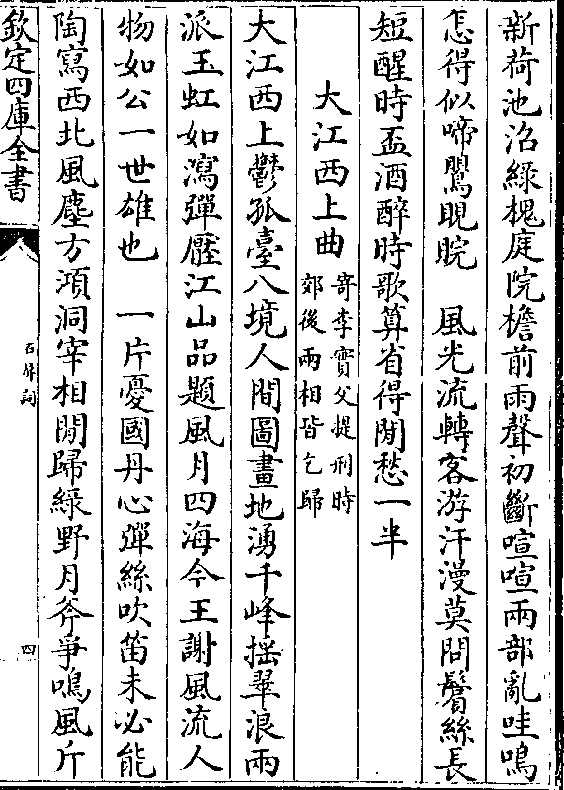 新荷池沼綠槐庭院檐前雨聲初斷喧喧兩部亂哇鳴
怎得似啼鶯睍睆　風光流轉客游汗漫莫問鬢絲長
短醒時盃酒醉時歌算省得閒愁一半
大江西上曲
寄李實父提刑時
郊後兩相皆乞歸
大江西上鬱孤臺八境人間圖畫地湧千峰揺翠浪兩
派玉虹如瀉彈壓江山品題風月四海今王謝風流人
物如公一世雄也　一片憂國丹心彈絲吹笛未必能
陶寫西北風塵方澒洞宰相閒歸綠野月斧爭鳴風斤
欽定四庫全書
石屏詞
四